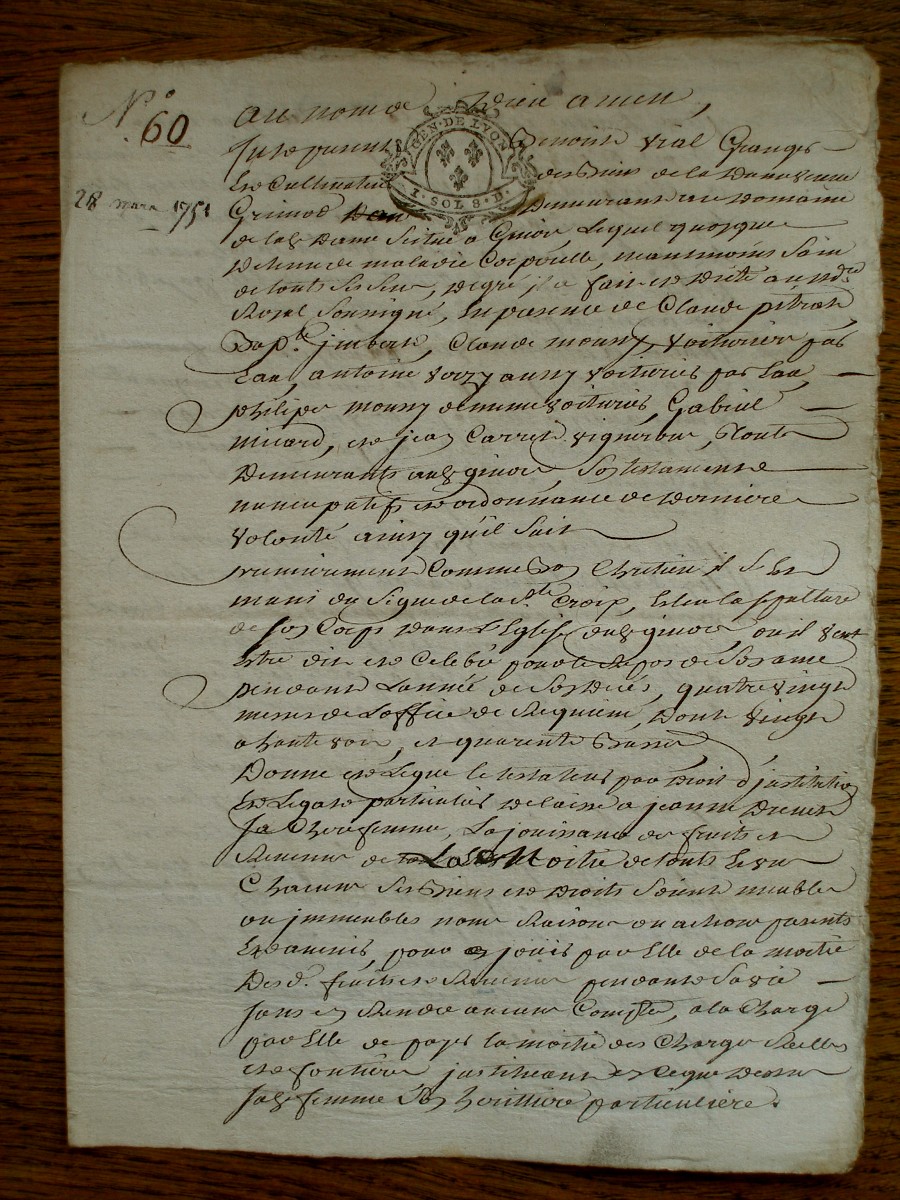 N.º 60
28 mars 1751
GEN. DE LYON
1. SOL 8. D.
au nom de Dieu amen,
fut present Benoist vial Granger
et Cultivateur des Biens de la Dame veuve
Grimod demeurant au Domaine
de lad Dame Scitué a Givors, Lequel quoyque
Detenu de maladie Corporelle, neanmoins Sain
de touts Ses Sens, de gré, a fait et Dicté au no.re
Royal Soussigné, En presence de Claude
Bap.te jmbert, Claude Mousy, Voiturier par
Eau, antoine aussy voiturier par Eau,
philipe mousy de meme voiturier, Gabriel
micard, et jean Carret vigneron, Touts
Demeurants aud givors, Son testament
nuncupatif et ordonnance de Derniere
volonté ainsy qu'il Suit
premierement Comme bon Chretien il S'est
muni du Signe de la S.te Croix, Eslu la sepulture
de Son Corps Dans L'Eglise dud givors, ou il veut
Estre dit et Celebré pour le Repos de Son ame
pendant L'année de Son Decés, quatre vingt
messes de L'office de Requiem, Dont vingt
a haute voix, et quarente Basses
Donne et Legue le testateur par Droit d'jnstitution
et Legat particulier delaisse a jeanne
Sa Chere femme, La jouissance des fruits et
Revenus de La Moitié de touts et un
Chacuns Ses Biens et Droits Soient meubles
ou jmmeubles noms Raisons ou actions presents
Et avenir, pour jouir par Elle de la moitié
Desd. fruits et Revenus pendant Sa vie
Sans en Rendre aucun Compte, a la Charge
par Elle de payer la moitié des Charges Reelles
et foncieres jnstituant en ce que Dessus
Sad femme Son heritiere particuliere.